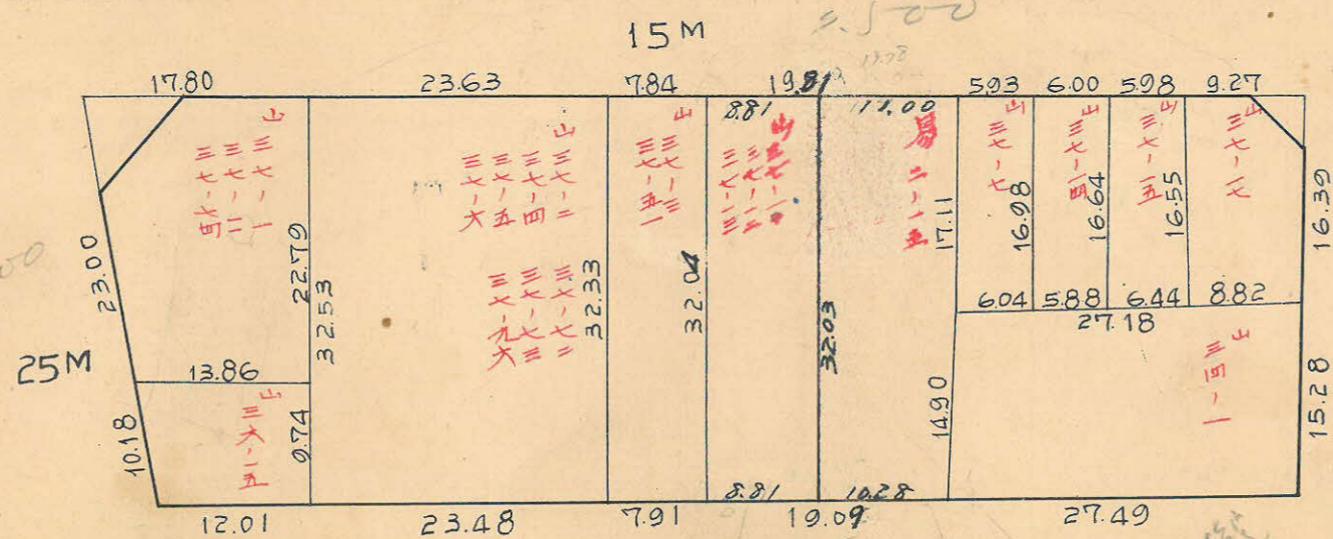 15M
17.80 23.63 7.84 19.81 5.93 6.00 5.98 9.27
8.81 11.00
山 三七-一
三七-二
山 三七-二
三七-四
三七-五
三七-六
三七-七二
三七-七三
三七-九六
山 三七-三
三七-五一
山
山 三七-七
山 三七-一四
山 三七-一五
山 三七-一七
23.00
22.79
32.53
32.33
32.04
32.03
17.11
16.98
16.64
16.55
16.39
6.04 5.88 6.44 8.82
27.18
25M
13.86
山 三六-一五
10.18
9.74
14.90
山 三四-一
15.28
8.81 10.28
12.01 23.48 7.91 19.09 27.49